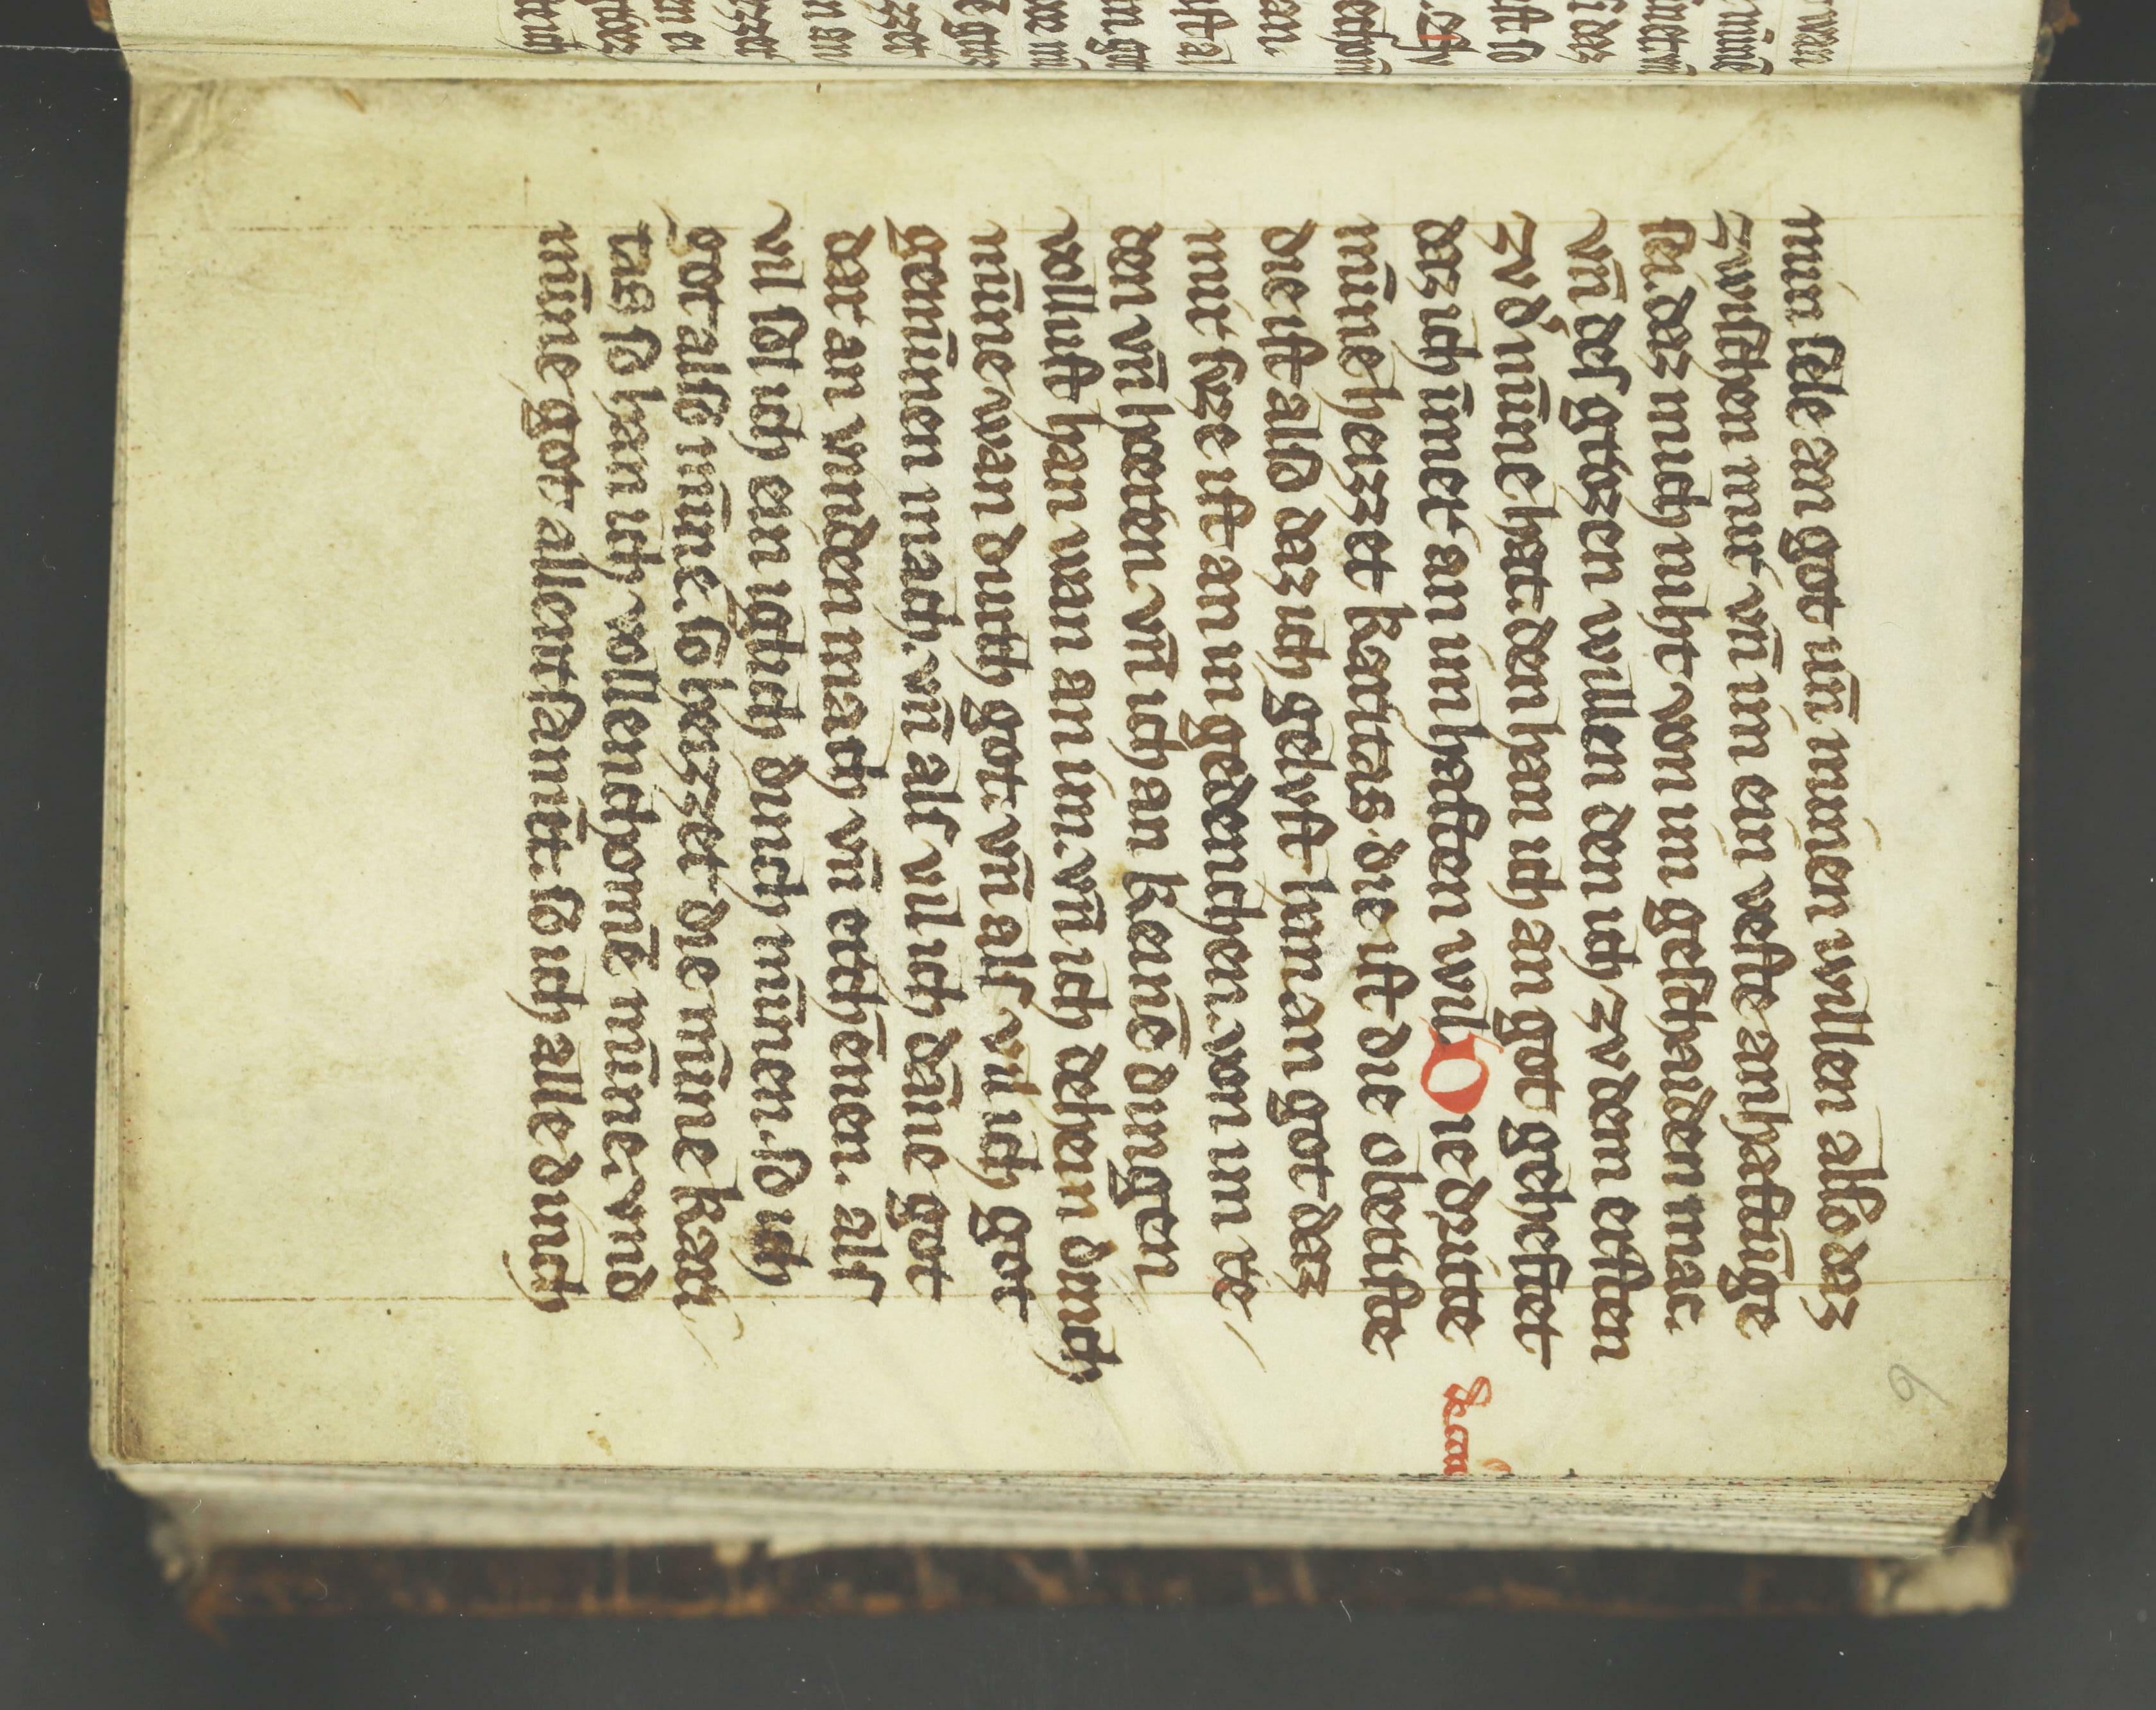 min sele an got mīn minen willen also daz
zwischen mir vn̄ im ein veste anhaftūge
sei. daz mich niht von im gescheiden mac.
vn̄ des grozen willen den ich zv dem ersten
zv d' mīne het. den han ich an got geheftet
daz ich immer an im haften wil. Die dritte
mīne heizzet karitas. die ist die oberiste
die ist also daz ich gelvst han an got daz
mir svze ist an im gedenchen. von im re
den vn̄ hoeren. vn̄ ich an keinē dingen
wollust han wan an im. vn̄ ich dehein dinch
mīne wan durch got. vn̄ als vil ich got
gemīnen mach. vn̄ als vil ich däne got
dar an vinden mach vn̄ erchēnen. als
vil sol ich ein igelich dinch mīnen. so ich
got also mīne. so heizzet die mīne kari
tas so han ich vollenchomē mīne. vnd
mīne got allentsamt. so ich alle dinch
9